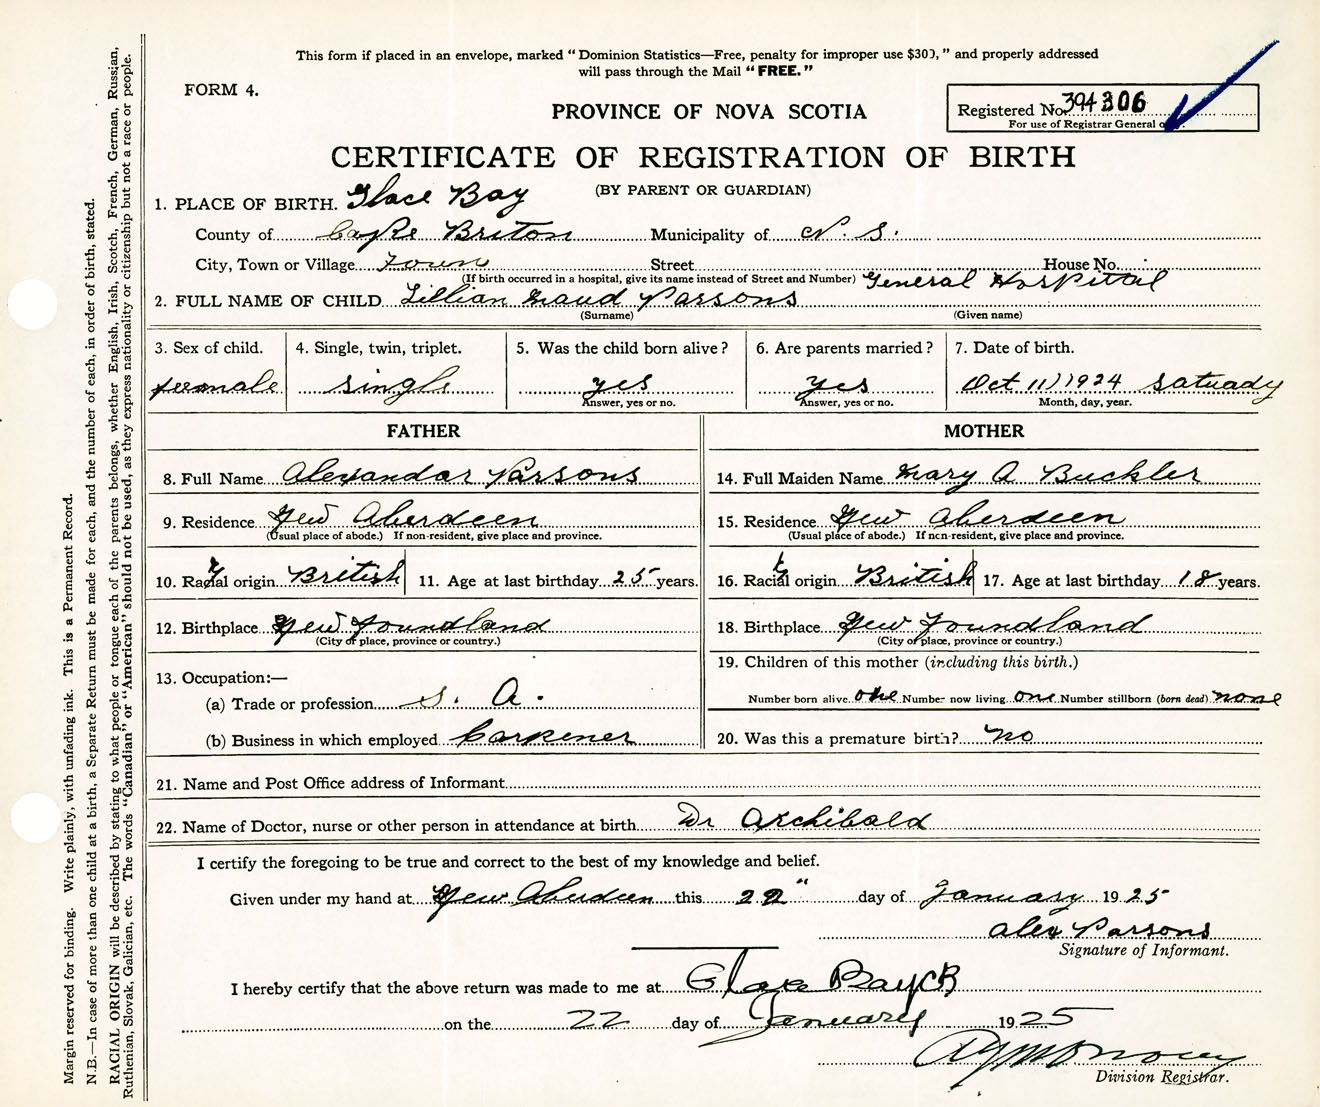 This form if placed in an envelope, marked "Dominion Statistics—Free, penalty for improper use $300," and properly addressed
will pass through the Mail "FREE."
FORM 4.
PROVINCE OF NOVA SCOTIA
Registered No. 394306
For use of Registrar General
CERTIFICATE OF REGISTRATION OF BIRTH
(BY PARENT OR GUARDIAN)
1. PLACE OF BIRTH. Glace Bay
County of Cape Briton Municipality of N. S.
City, Town or Village Town Street House No.
(If birth occurred in a hospital, give its name instead of Street and Number) General Hospital
2. FULL NAME OF CHILD Lillian Maud Parsons
(Surname) (Given name)
3. Sex of child. 4. Single, twin, triplet. 5. Was the child born alive? 6. Are parents married? 7. Date of birth.
female single yes yes Oct 11) 1924 satuady
Answer, yes or no. Answer, yes or no. Month, day, year.
FATHER MOTHER
8. Full Name Alexandar Parsons 14. Full Maiden Name Mary A Buckler
9. Residence New Aberdeen 15. Residence New Aberdeen
(Usual place of abode.) If non-resident, give place and province. (Usual place of abode.) If non-resident, give place and province.
10. Racial origin British 11. Age at last birthday 25 years. 16. Racial origin British 17. Age at last birthday 18 years.
12. Birthplace New Foundland 18. Birthplace New Foundland
(City or place, province or country.) (City or place, province or country.)
13. Occupation:— 19. Children of this mother (including this birth.)
(a) Trade or profession S. A. Number born alive one Number now living one Number stillborn (born dead) none
(b) Business in which employed Carpener 20. Was this a premature birth? no
21. Name and Post Office address of Informant
22. Name of Doctor, nurse or other person in attendance at birth Dr Archibald
I certify the foregoing to be true and correct to the best of my knowledge and belief.
Given under my hand at New Aberdeen this 22" day of January 1925
Alex Parsons
Signature of Informant.
I hereby certify that the above return was made to me at Glace Bay CB
on the 22 day of January 1925
Division Registrar.
Margin reserved for binding. Write plainly, with unfading ink. This is a Permanent Record.
N.B.—In case of more than one child at a birth, a Separate Return must be made for each, and the number of each, in order of birth, stated.
RACIAL ORIGIN will be described by stating to what people or tongue each of the parents belongs, whether English, Irish, Scotch, French, German, Russian,
Ruthenian, Slovak, Galician, etc. The words "Canadian" or "American" should not be used, as they express nationality or citizenship but not a race or people.